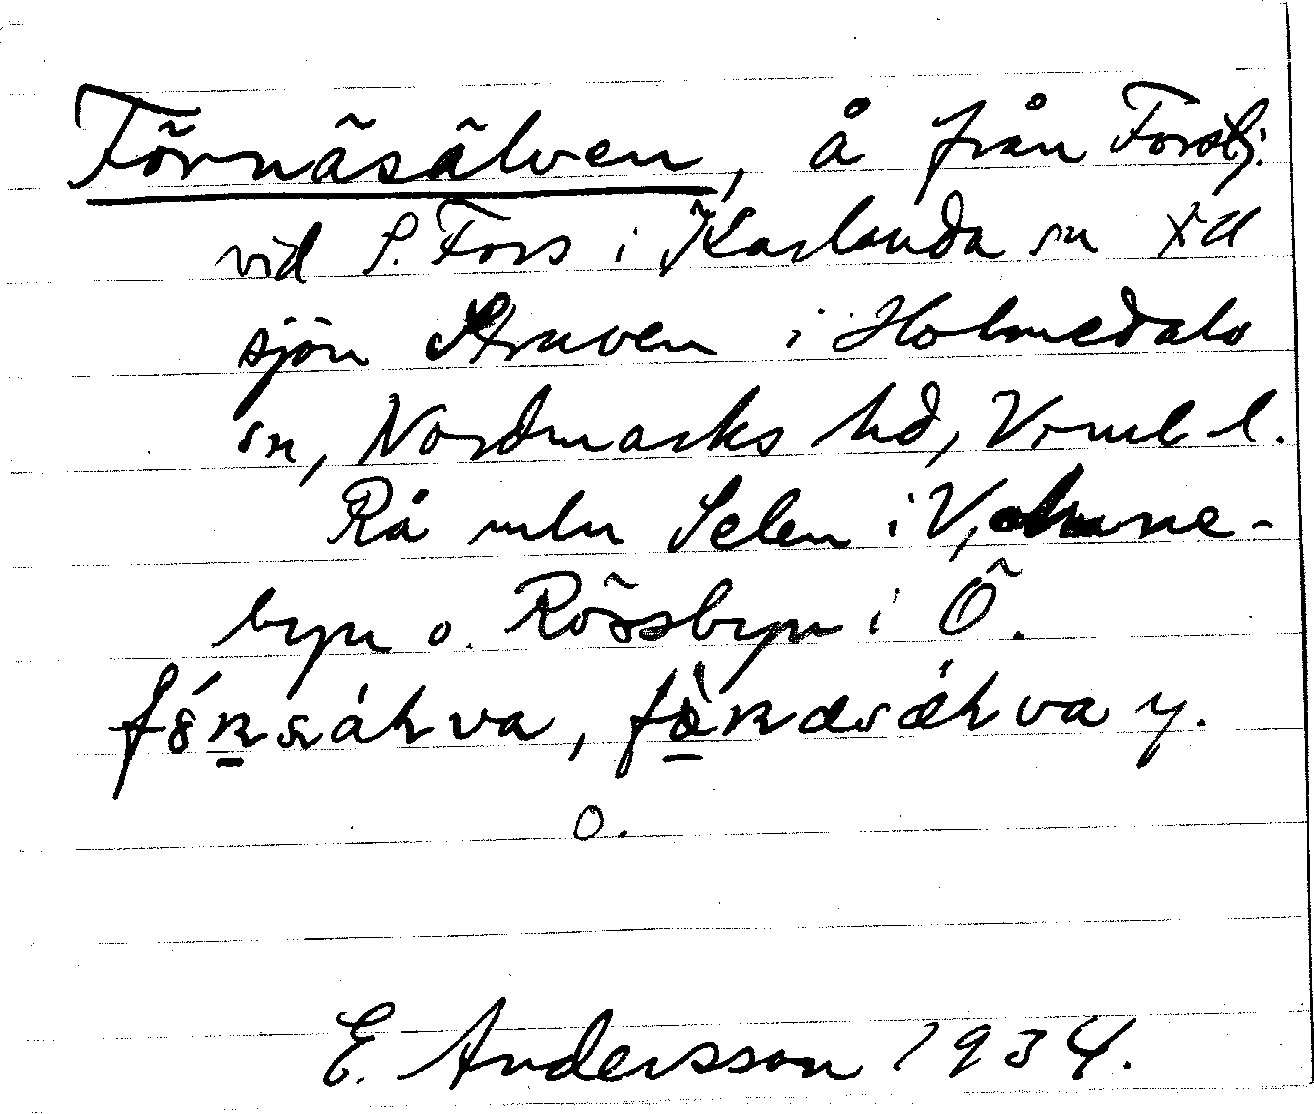 Förnäsälven, å från Forsbj.
vid S. Fors i Karlanda sn till
sjön Struven i Holmedals
sn, Nordmarks hd, Vrml l.
Rå mln Selen i V,
byn o. Rössbyn i Ö.
y.
o.
E. Andersson 1934.